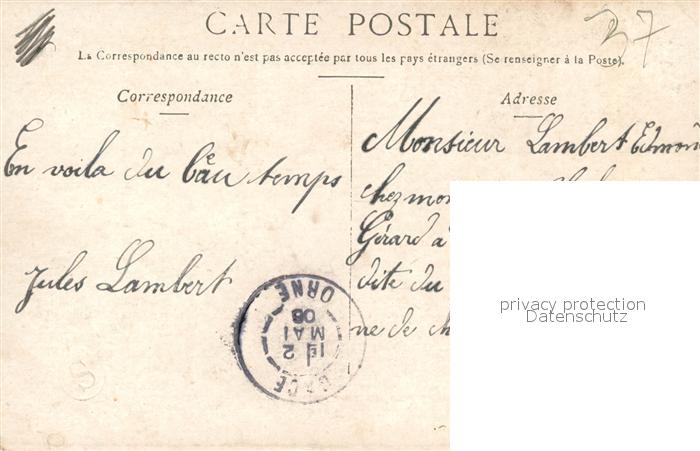 CARTE POSTALE
37
La Correspondance au recto n'est pas acceptée par tous les pays étrangers (Se renseigner à la Poste).
Correspondance
En voila du bêau temps
Jules Lambert
Adresse
Monsieur Lambert Edmon
chez mon
Gérard à
dite du
ne de ch
ORNE
08
MAI
2
privacy protection
Datenschutz